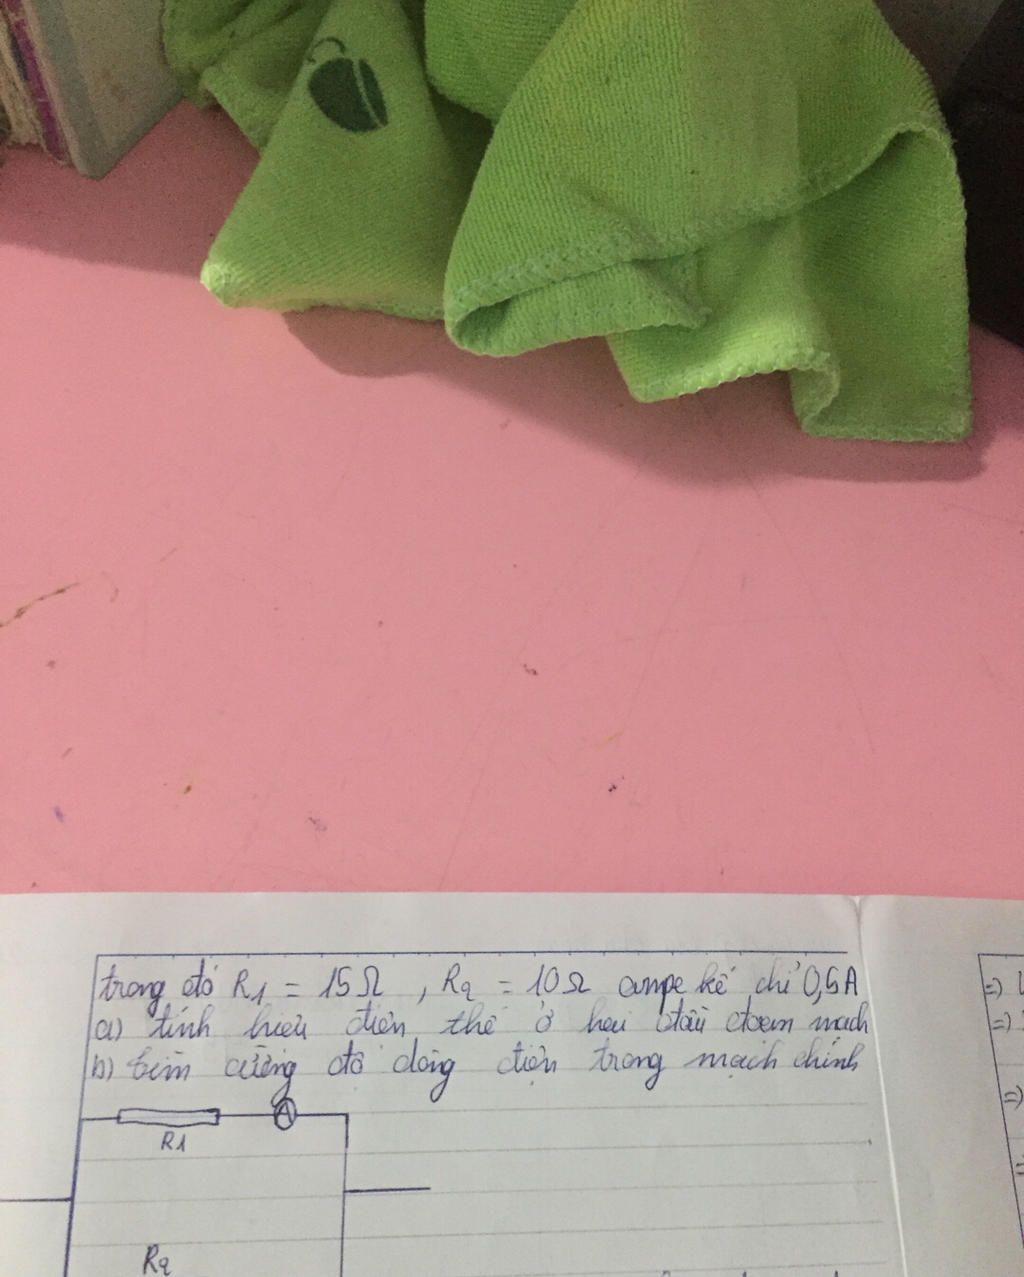 trong đó R1 = 15Ω , R2 = 10Ω ampe kế chỉ 0,6A
a) tính hiệu điện thế ở hai đầu đoạn mạch
b) tìm cường độ dòng điện trong mạch chính
A
R1
R2
=)
=)
=)